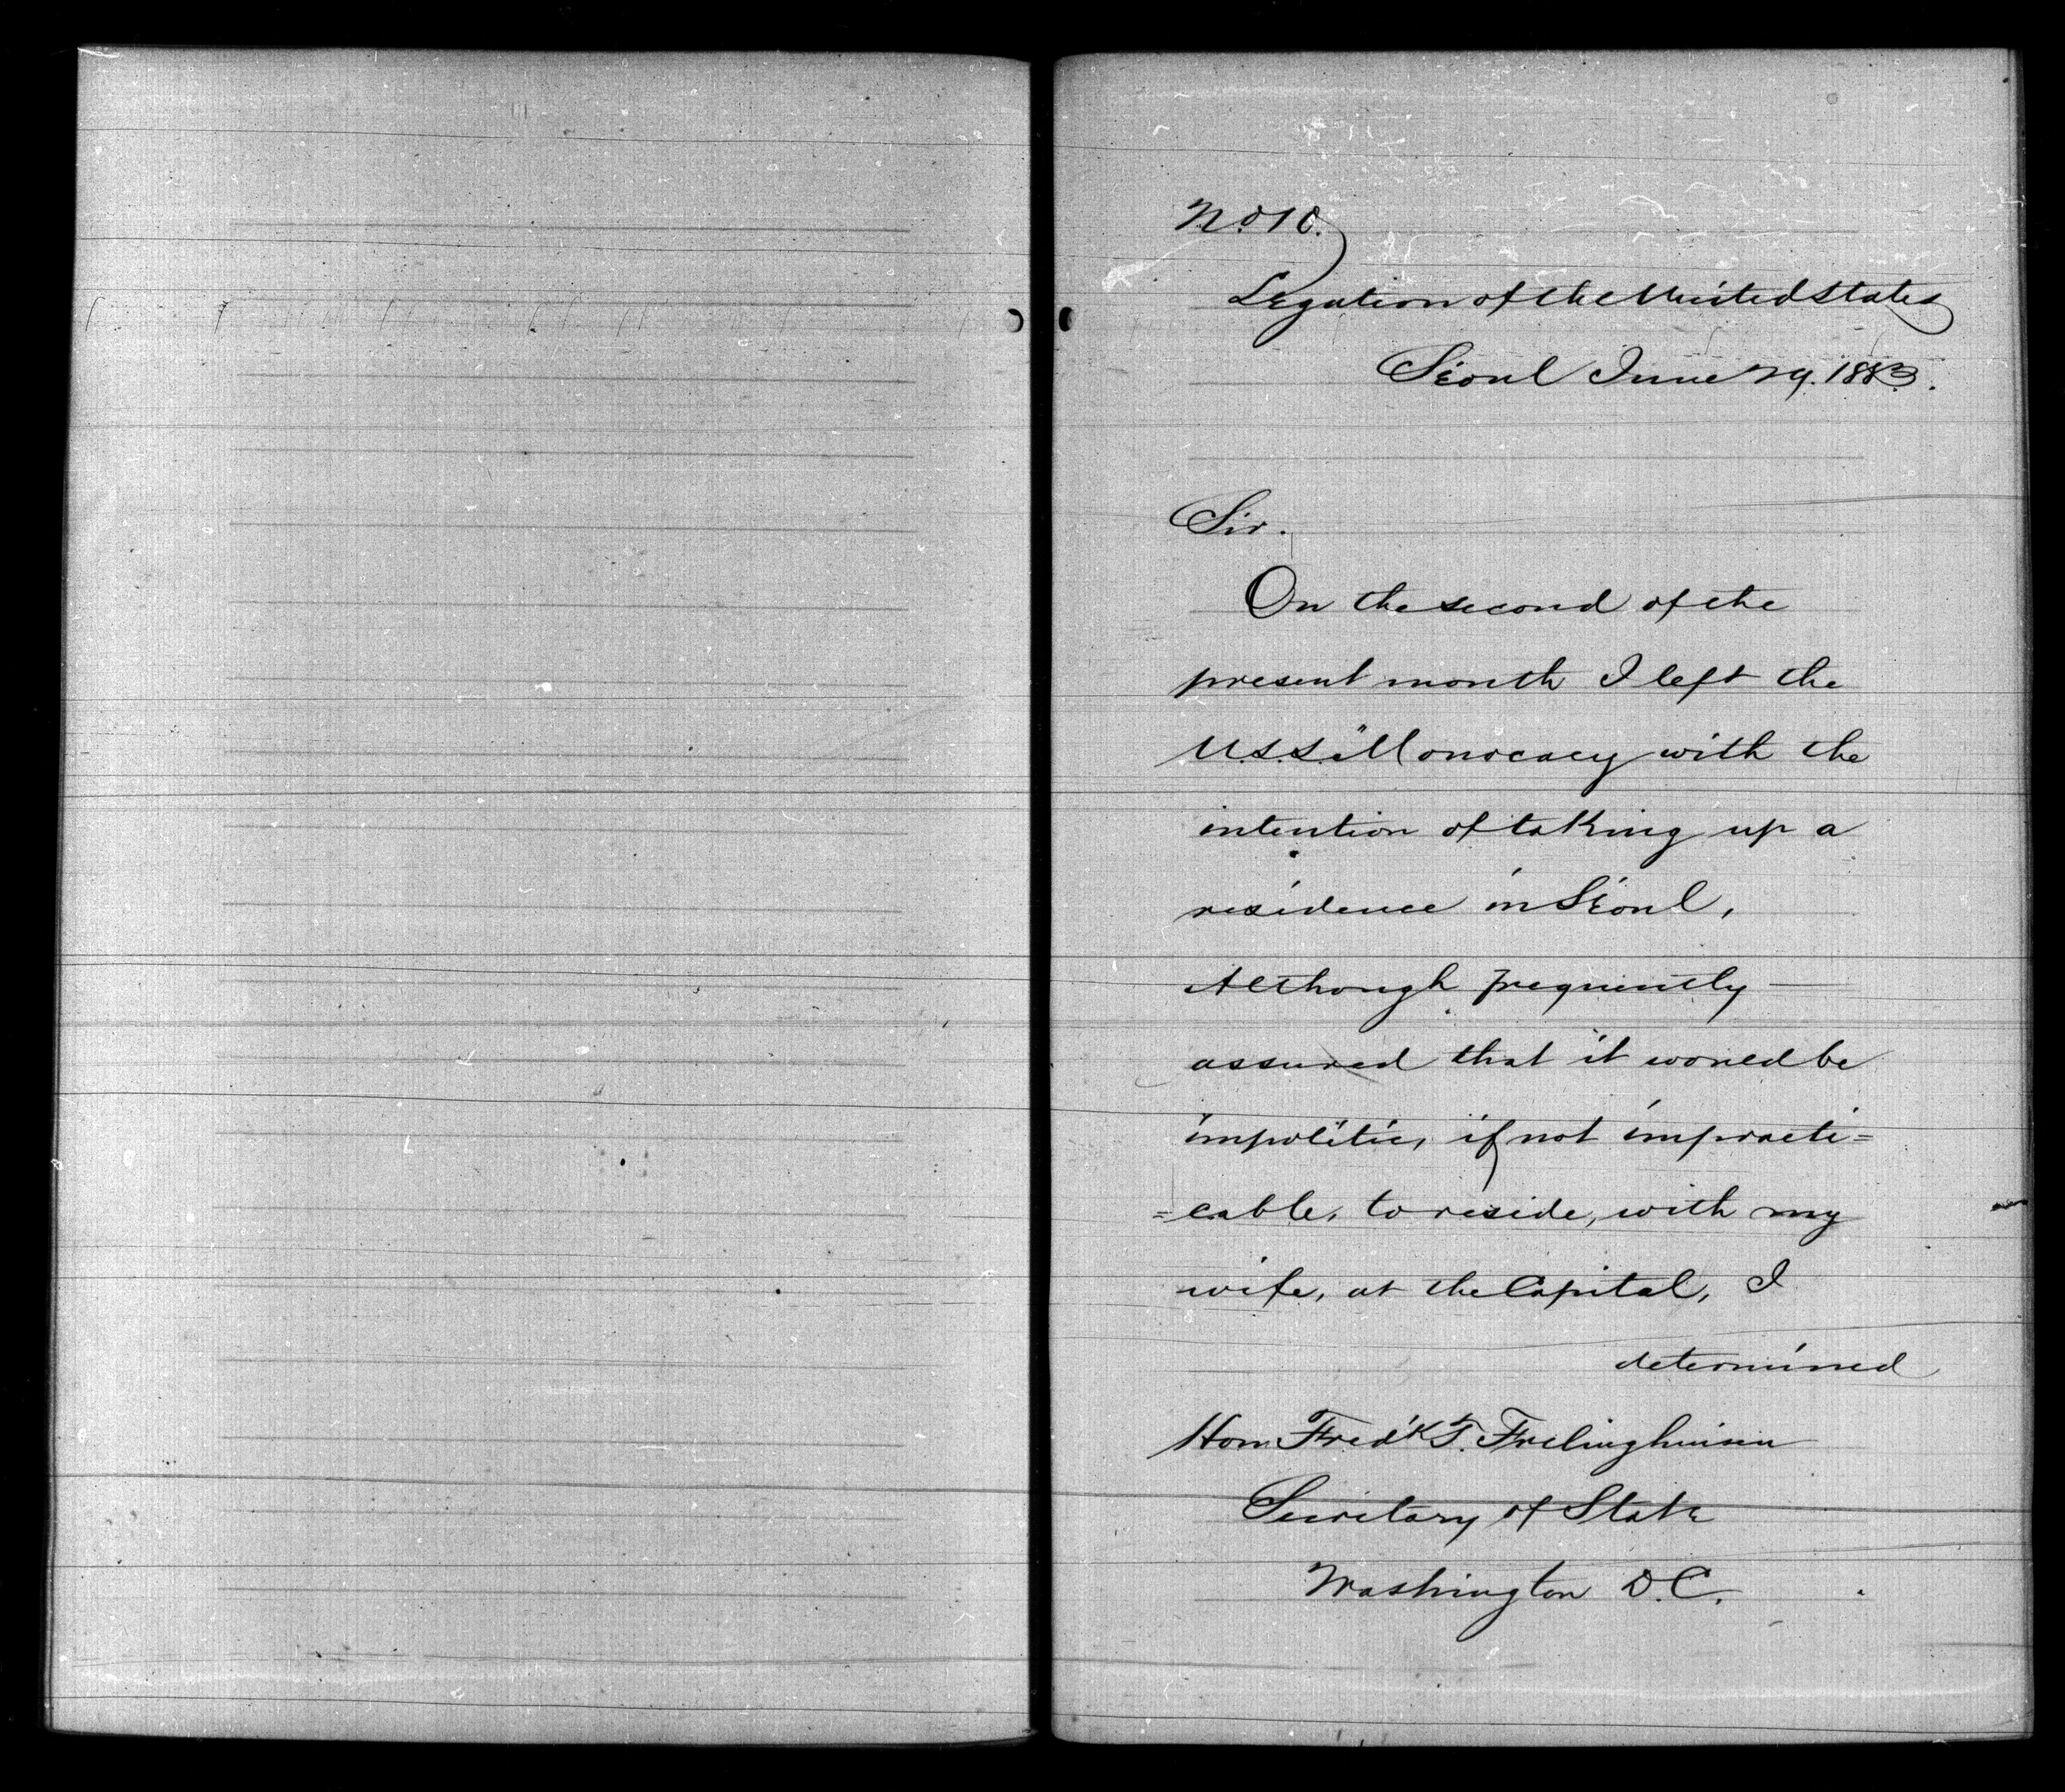 No. 10.
Legation of the United States
Séoul June 29. 1883.
Sir.
On the second of the
present month I left the
U.S.S. "Monocacy with the
intention of taking up a
residence in Séoul,
Although frequently
assured that it would be
impolitic, if not impracti=
=cable, to reside, with my
wife, at the Capital, I
determined
Hon. Fred'k T. Frelinghuisen
Secretary of State
Washington D.C.